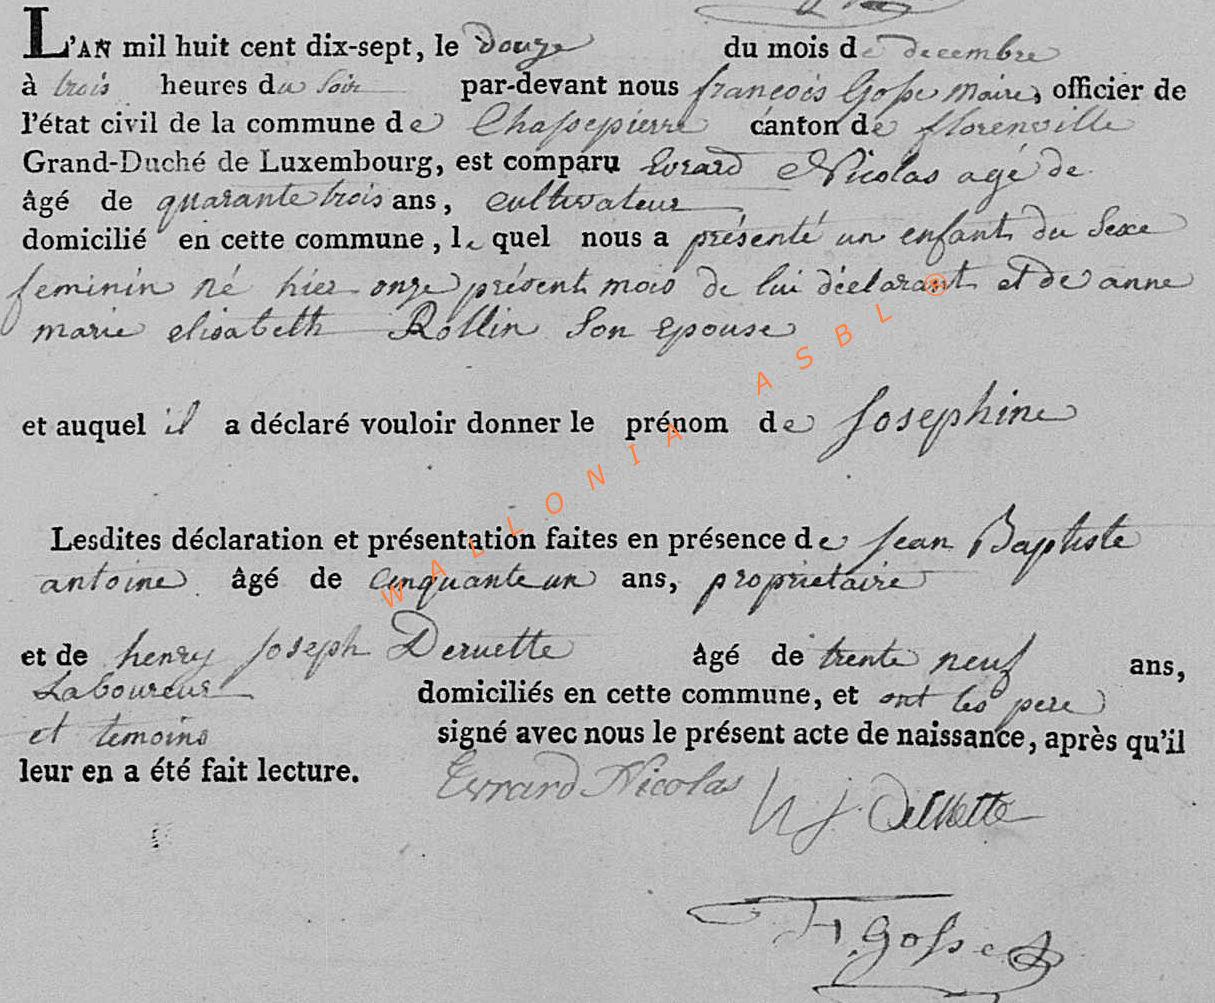 L'AN mil huit cent dix-sept, le douze du mois de decembre
à trois heures du soir par-devant nous françois Gosse Maire, officier de
l'état civil de la commune de Chassepierre canton de florenville
Grand-Duché de Luxembourg, est comparu Evrard Nicolas agé de
âgé de quarante trois ans, cultivateur
domicilié en cette commune, le quel nous a présenté un enfant du Sexe
feminin né hier onze présent mois de lui déclarant et de anne
marie elisabeth Rollin Son epouse
et auquel il a déclaré vouloir donner le prénom de Josephine
Lesdites déclaration et présentation faites en présence de Jean Baptiste
antoine âgé de cinquante un ans, proprietaire
et de henry Joseph Deruette âgé de trente neuf ans,
Laboureur domiciliés en cette commune, et ont les pere
et temoins signé avec nous le présent acte de naissance, après qu'il
leur en a été fait lecture.
Evrard Nicolas
h j Deruette
F. Gosse
WALLONIA ASBL ®